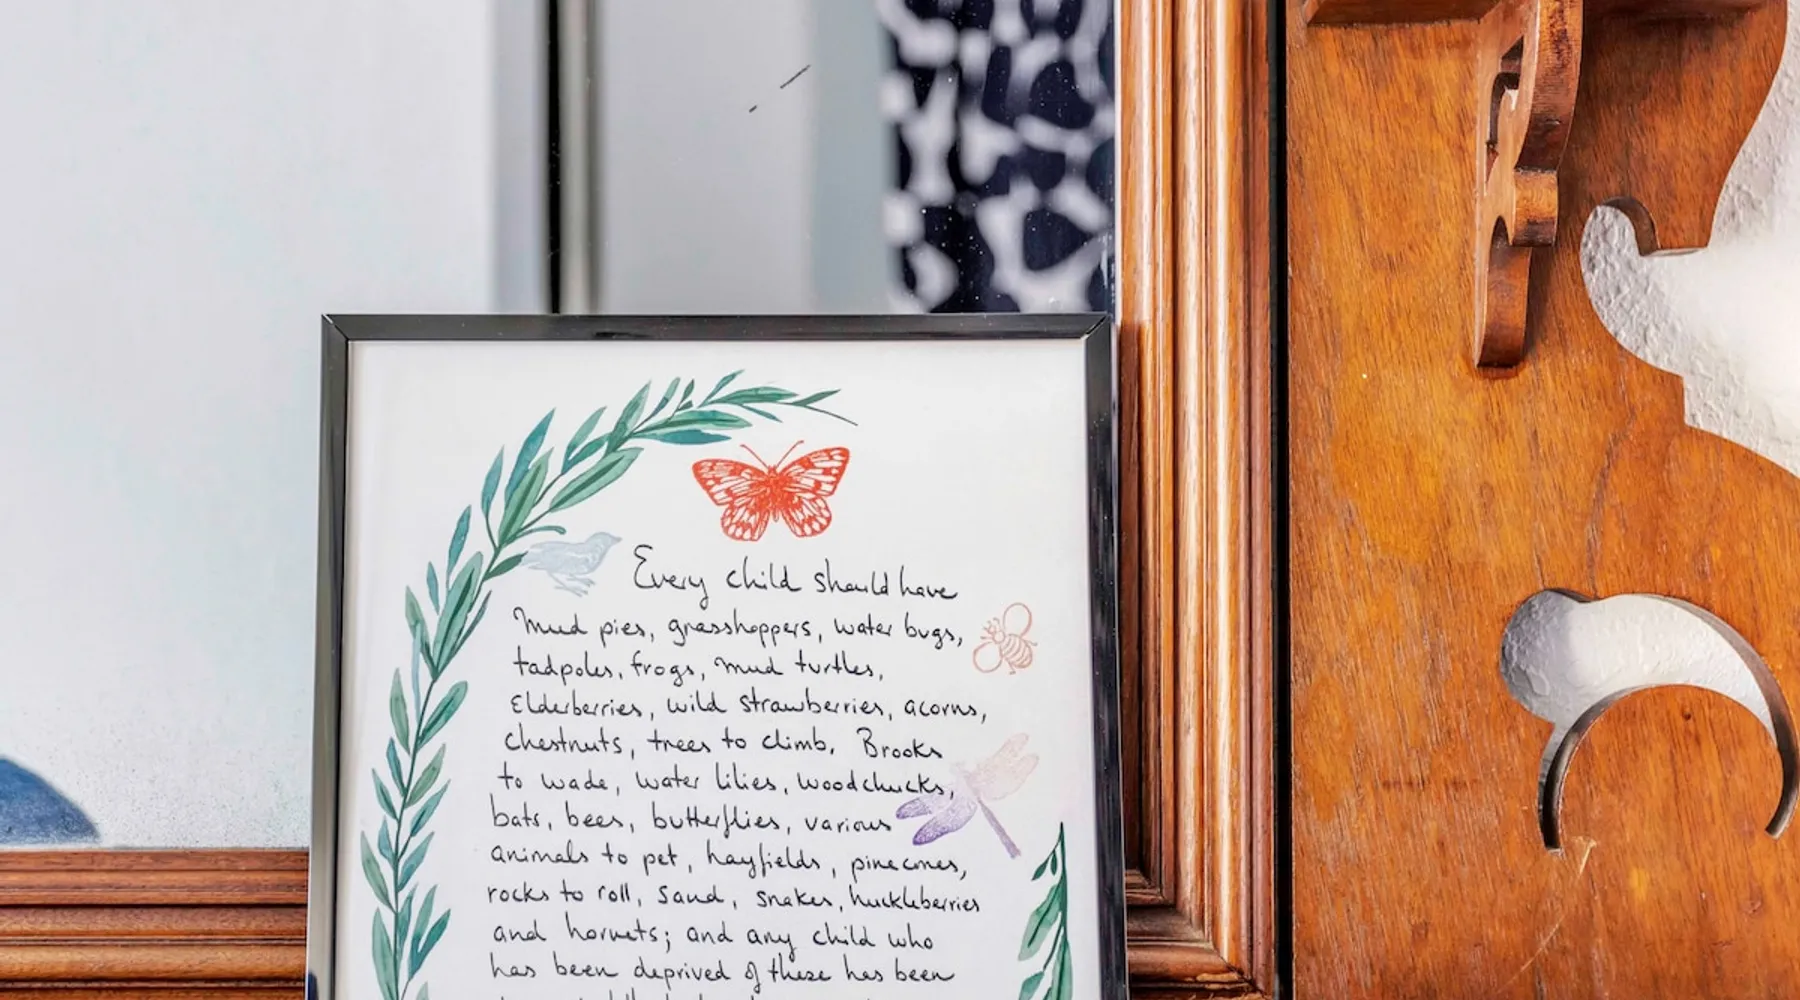 Every child should have
mud pies, grasshoppers, water bugs,
tadpoles, frogs, mud turtles,
Elderberries, wild strawberries, acorns,
chestnuts, trees to climb. Brooks
to wade, water lilies, woodchucks,
bats, bees, butterflies, various
animals to pet, hayfields, pinecones,
rocks to roll, sand, snakes, huckleberries
and hornets; and any child who
has been deprived of these has been